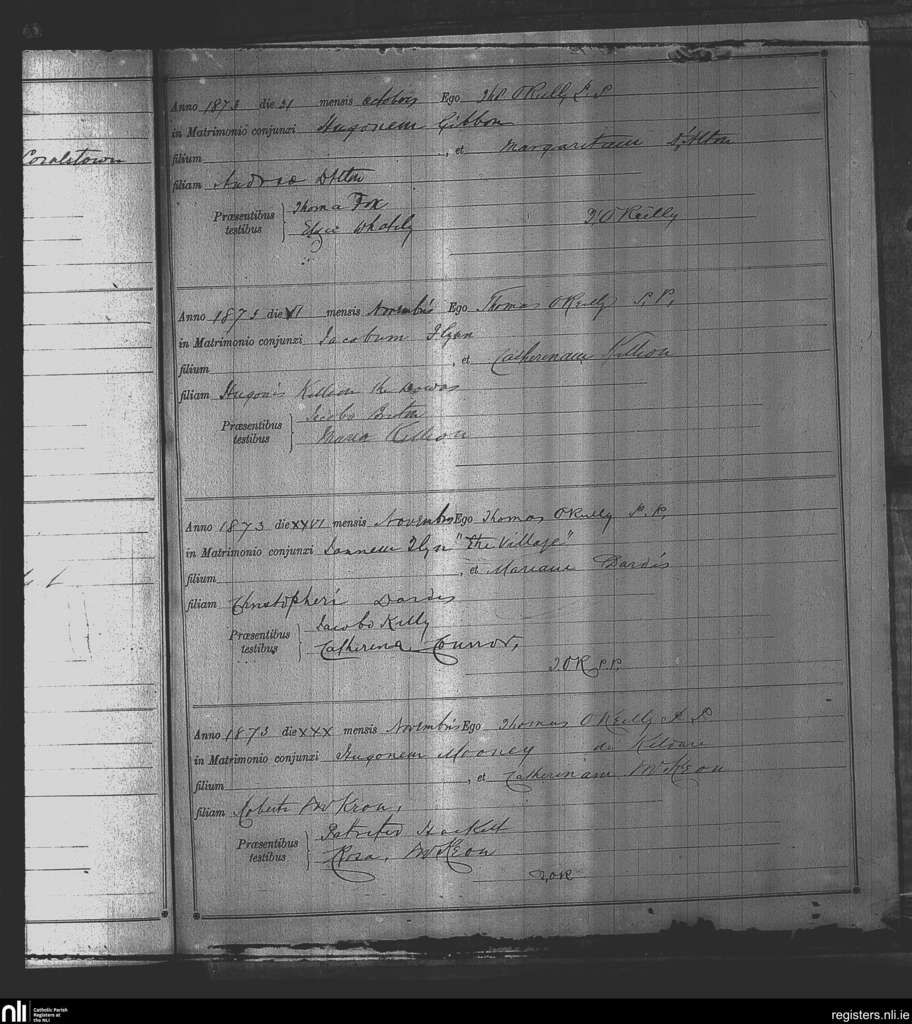 Coralstown
Anno 1873 die 21 mensis Octobris Ego Thos O'Reilly P. P
in Matrimonio conjunxi Hugonem Gibbon
filium , et Margaritam D'Alton
filiam Andreae D'Alton
Præsentibus testibus } Thoma Fox
T, O'Reilly
Anno 1873 die XI mensis Novembris Ego Thomas O'Reilly P. P.
in Matrimonio conjunxi Jacobum Flynn
filium , et Catherinam Killion
filiam Hugonis Killion the Downs
Præsentibus testibus } Jacobo
Maria Killion
Anno 1873 die XXVI mensis Novembris Ego Thomas O'Reilly P. P.
in Matrimonio conjunxi Joannem Flyn "the Village"
filium , et Mariam Dardis
filiam Christopheri Dardis
Præsentibus testibus } Jacobo Kelly
Catherina Connor,
T. OR P.P.
Anno 1873 die XXX mensis Novembris Ego Thomas O'Reilly P. P
in Matrimonio conjunxi Hugonem Mooney de Kildare
filium , et Catherinam McKeon
filiam Roberti McKeon,
Præsentibus testibus } Patritio Hackett
Rosa, McKeon
T, OR
nli
Catholic Parish
Registers at
the NLI
registers.nli.ie